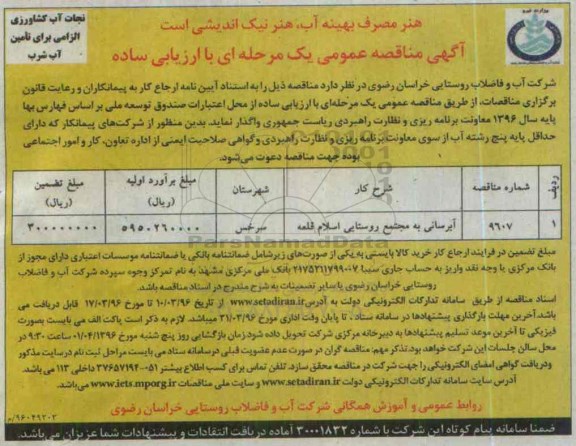 هنر مصرف بهینه آب، هنر نیک اندیشی است
نجات آب کشاورزی
الزامی برای تأمین
آب شرب
آگهی مناقصه عمومی یک مرحله ای با ارزیابی ساده
شرکت آب و فاضلاب روستایی خراسان رضوی در نظر دارد مناقصه ذیل را به استناد آیین نامه ارجاع کار به پیمانکاران و رعایت قانون
برگزاری مناقصات، از طریق مناقصه عمومی یک مرحله‌ای با ارزیابی ساده از محل اعتبارات صندوق توسعه ملی بر اساس فهارس بها
پایه سال ۱۳۹۶ معاونت برنامه ریزی و نظارت راهبردی ریاست جمهوری واگذار نماید. بدین منظور از شرکت‌های پیمانکار که دارای
حداقل پایه پنج رشته آب از سوی معاونت برنامه ریزی و نظارت راهبردی و گواهی صلاحیت ایمنی از اداره تعاون، کار و امور اجتماعی
بوده جهت مناقصه دعوت می‌شود.
ردیف شماره مناقصه شرح کار شهرستان مبلغ برآورد اولیه (ریال) مبلغ تضمین (ریال)
۱ ۹۶۰۷ آبرسانی به مجتمع روستایی اسلام قلعه سرخس ۵۹۵۰۲۶۰۰۰۰ ۳۰۰۰۰۰۰۰۰
مبلغ تضمین در فرایند ارجاع کار خرید کالا بایستی به یکی از صورت‌های زیر شامل ضمانتنامه بانکی یا ضمانتنامه موسسات اعتباری دارای مجوز از
بانک مرکزی یا وجه نقد واریز به حساب جاری سیبا ۲۱۷۵۲۱۱۷۹۹۰۰۷ بانک ملی مرکزی مشهد به نام تمرکز وجوه سپرده شرکت آب و فاضلاب
روستایی خراسان رضوی یا سایر تضمینات به شرح مندرج در اسناد مناقصه باشد.
اسناد مناقصه از طریق سامانه تدارکات الکترونیکی دولت به آدرس www.setadiran.ir از تاریخ ۱۰/۰۳/۹۶ تا مورخ ۱۷/۰۳/۹۶ قابل دریافت می
باشد. آخرین مهلت بارگذاری پیشنهادها در سامانه ستاد ، تا پایان وقت اداری مورخ ۳۱/۰۳/۹۶ میباشد. لازم به ذکر است پاکت الف می بایست بصورت
فیزیکی تا آخرین موعد تسلیم پیشنهادها به دبیرخانه مرکزی شرکت تحویل داده شود. زمان بازگشایی روز پنج شنبه مورخ ۰۱/۰۴/۱۳۹۶ ساعت ۹:۳۰ در
محل سالن جلسات این شرکت خواهد بود. تذکر مهم: مناقصه گران در صورت عدم عضویت قبلی در سامانه ستاد می بایست مراحل ثبت نام در سایت مذکور
و دریافت گواهی امضای الکترونیکی را جهت شرکت در مناقصه محقق سازد. تلفن تماس برای کسب اطلاع بیشتر ۰۵۱-۳۷۶۵۷۱۹۴ داخلی ۱۱۳ می باشد.
آدرس سایت سامانه تدارکات الکترونیکی دولت www.setadiran.ir و سایت ملی مناقصات www.iets.mporg.ir می‌باشد.
روابط عمومی و آموزش همگانی شرکت آب و فاضلاب روستایی خراسان رضوی
۹۶۰۴۹۲۰۲/م
ضمنا سامانه پیام کوتاه این شرکت با شماره ۳۰۰۰۱۸۳۲ آماده دریافت انتقادات و پیشنهادات شما عزیزان می باشد.
ParsNamadData